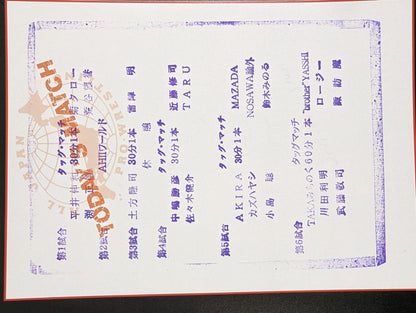 TODAY'S MATCH
ALL JAPAN PRO WRESTLING
第1試合 タッグ・マッチ
平井伸和 30分1本
第2試合
AHIIワールド
第3試合 土方隆司 30分1本 雷陣 明
休憩
第4試合 タッグ・マッチ
中嶋勝彦 30分1本 近藤修司
佐々木健介 TARU
第5試合 タッグ・マッチ
AKIRA 30分1本 MAZADA
カズハヤシ NOSAWA論外
小島 聡 鈴木みのる
第6試合 タッグマッチ
TAKAみちのく 60分1本 "brother"YASSHI
川田利明 ロージー
武藤敬司 諏訪魔